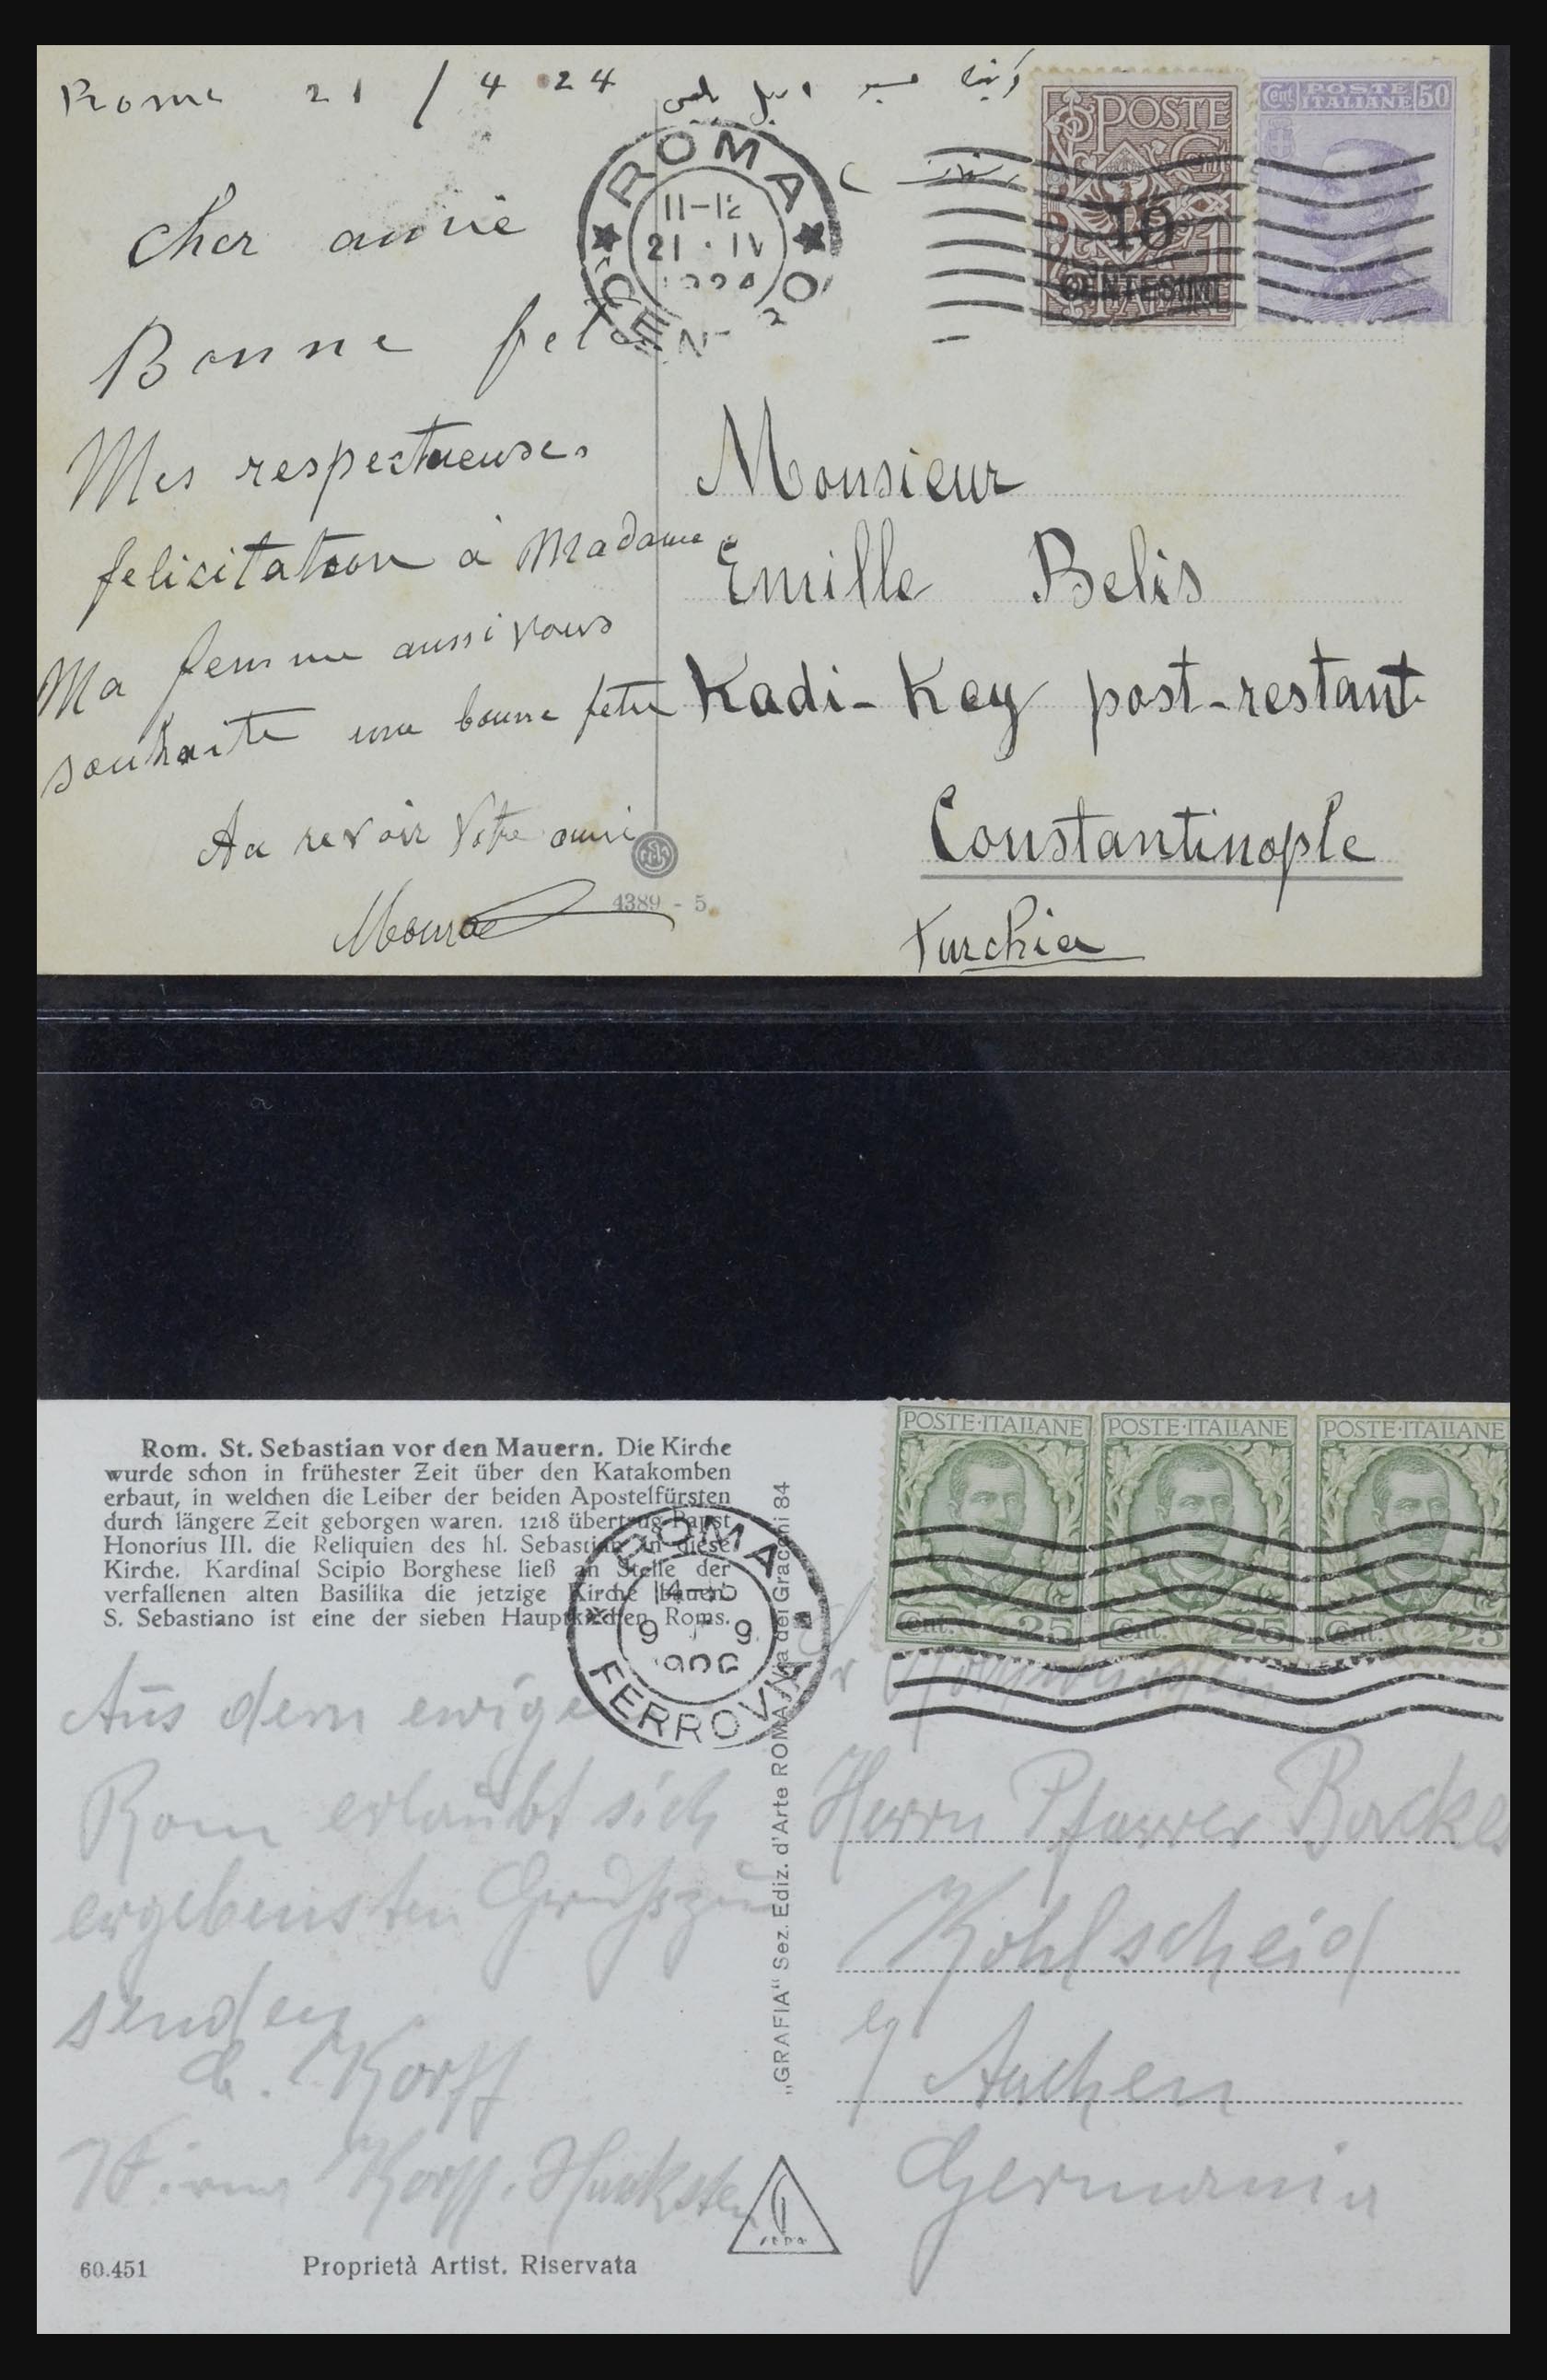 Rome 21 / 4 24
ROMA
11-12
21 · IV
CEN
POSTE
Cmi
10
CENTESIMI
Cent. POSTE ITALIANE 50
Cher amie
Bonne fete
Mes respectueuses
felicitation à Madame
Ma femme aussi vous
souhaite une bonne fete
Au revoir Votre ami
4389 - 5
Monsieur
Emille Belis
Kadi-Key post-restant
Constantinople
Turchia
Rom. St. Sebastian vor den Mauern. Die Kirche
wurde schon in frühester Zeit über den Katakomben
erbaut, in welchen die Leiber der beiden Apostelfürsten
durch längere Zeit geborgen waren. 1218 übertrug Papst
Honorius III. die Reliquien des hl. Sebastian in diese
Kirche. Kardinal Scipio Borghese ließ an Stelle der
verfallenen alten Basilika die jetzige Kirche bauen.
S. Sebastiano ist eine der sieben Hauptkirchen Roms.
ROMA
9 9
FERROVIA
POSTE·ITALIANE
Cent. 25
POSTE·ITALIANE
Cent. 25
POSTE·ITALIANE
Cent. 25
Aus dem ewigen
Rom erlaubt sich
ergebensten Gruß zu
senden
Korff
Firma Korff,
„GRAFIA" Sez. Ediz. d'Arte ROMA, Via dei Gracchi 84
Herrn Pfarrer
Kohlscheid
Aachen
Germania
60.451 Proprietà Artist. Riservata